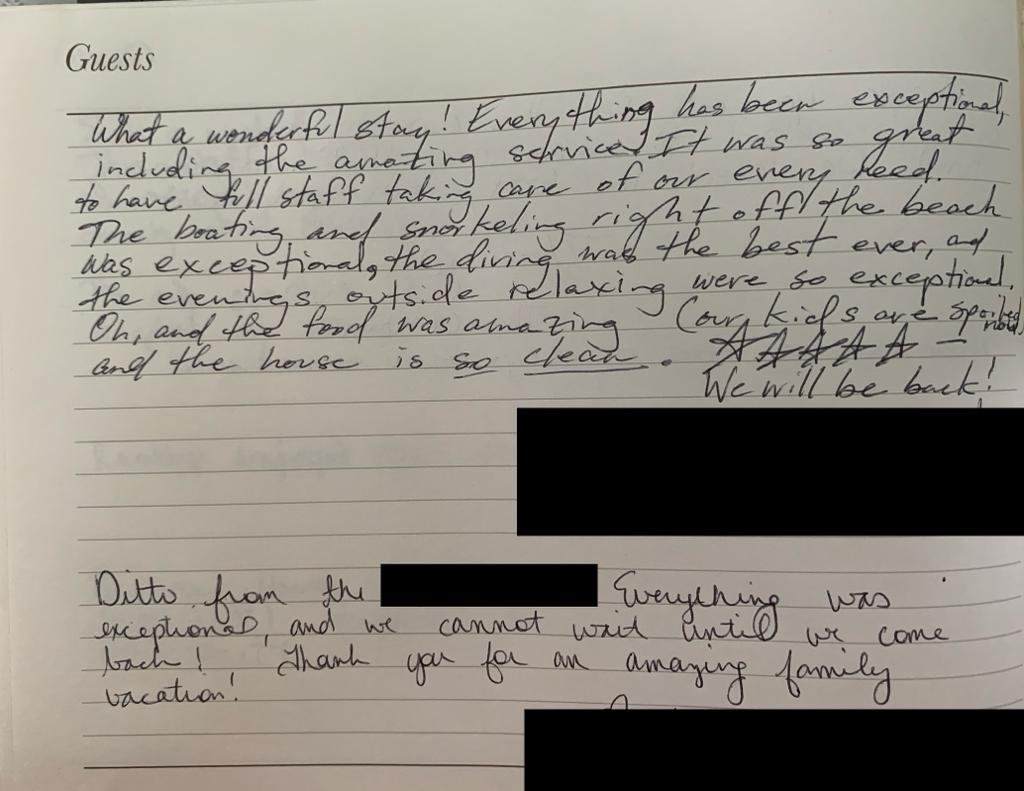 Guests
What a wonderful stay! Everything has been exceptional,
including the amazing service! It was so great
to have full staff taking care of our every need.
The boating and snorkeling right off the beach
was exceptional, the diving was the best ever, and
the evenings outside relaxing were so exceptional.
Oh, and the food was amazing (our kids are spoiled now)
and the house is so clean. ☆☆☆☆☆ –
We will be back!
Ditto from the Everything was
exceptional, and we cannot wait until we come
back! Thank you for an amazing family
vacation!